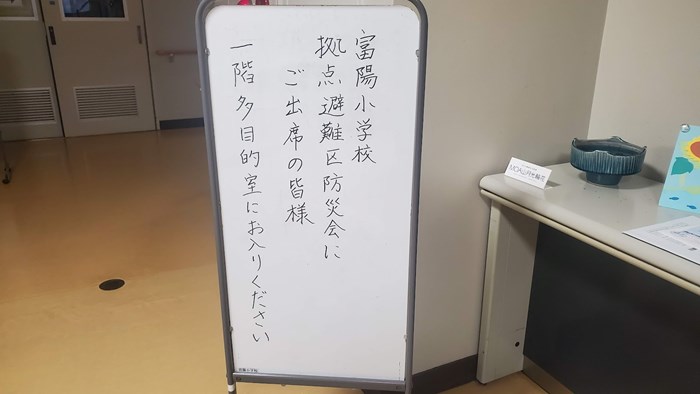 富陽小学校
拠点避難区防災会に
ご出席の皆様
一階多目的室にお入りください